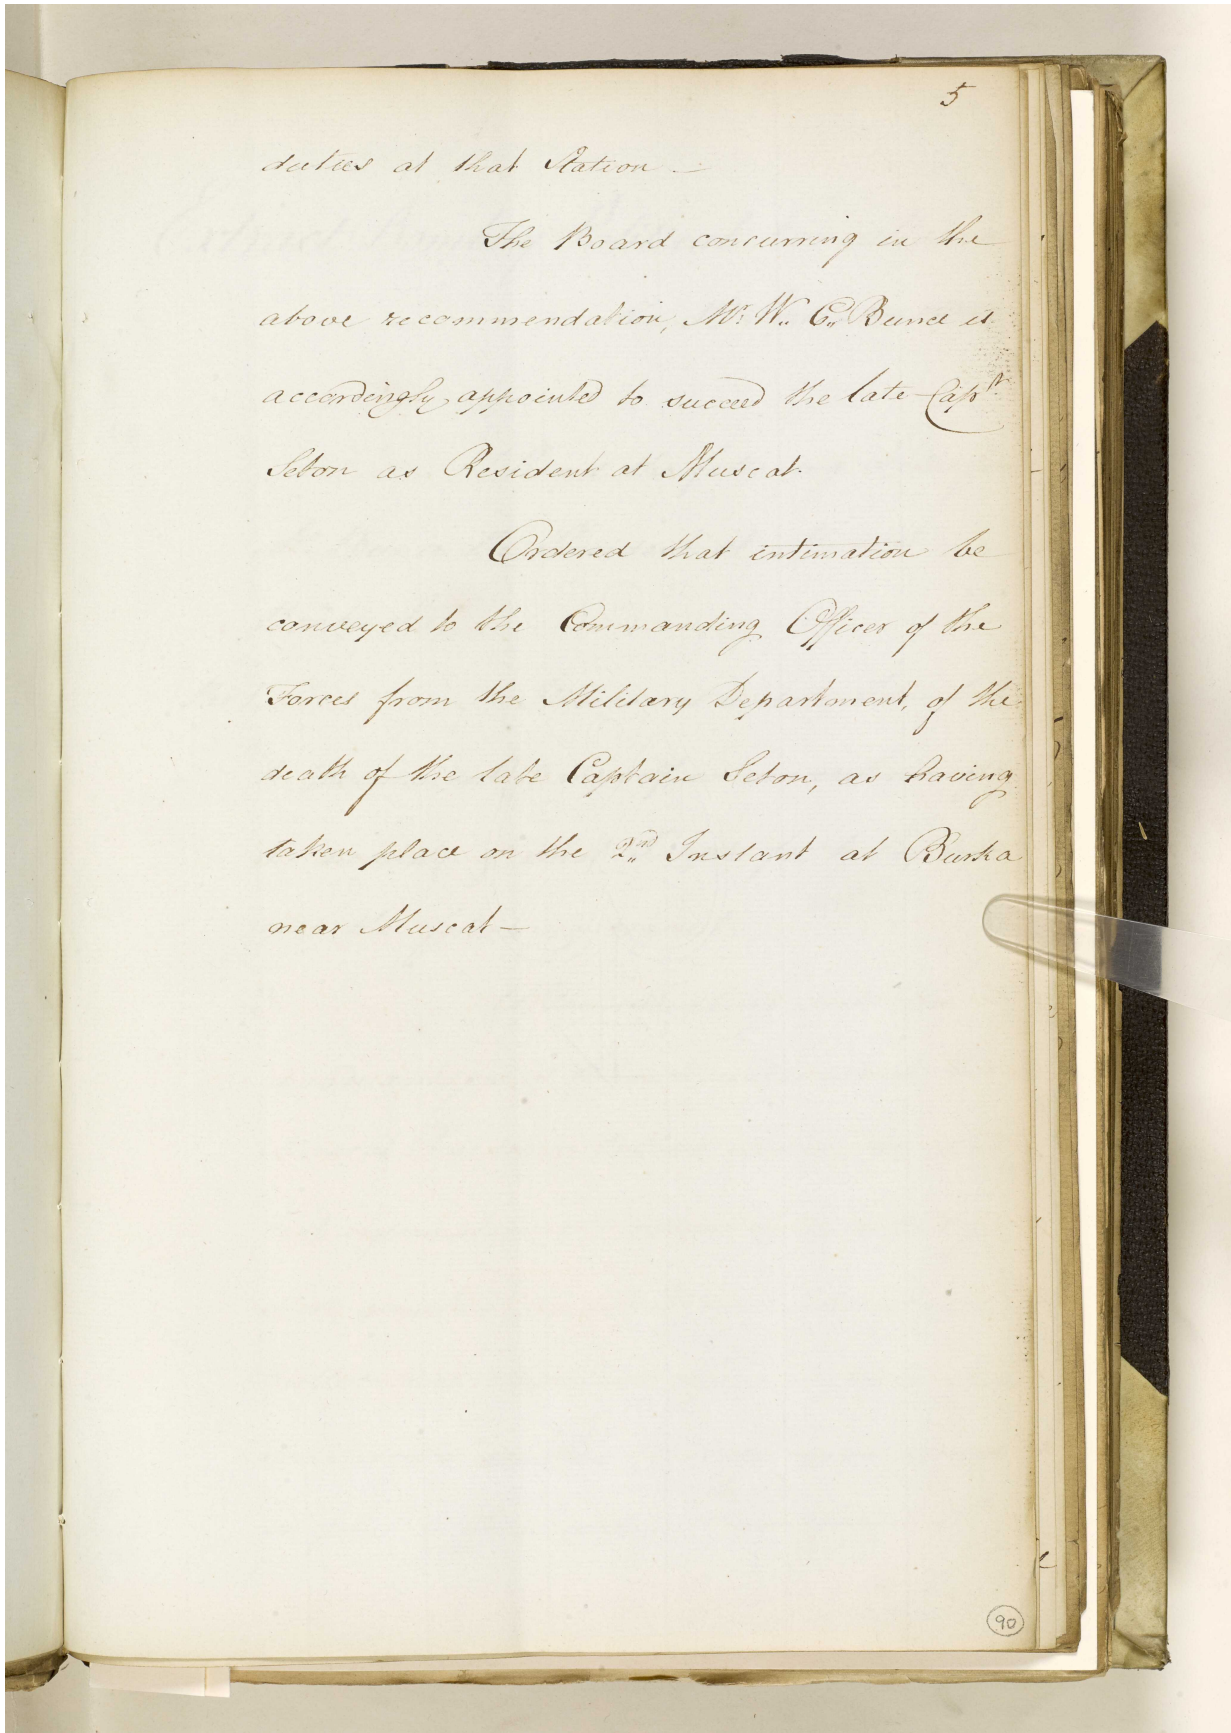 5
duties at that Station –
The Board concurring in the
above recommendation, Mr: W.. C.. Bunce is
accordingly appointed to succeed the late Capt:
Seton as Resident at Muscat.
Ordered that intimation be
conveyed to the Commanding Officer of the
Forces from the Military Department, of the
death of the late Captain Seton, as having
taken place on the 2nd Instant at Burka
near Muscat –
90